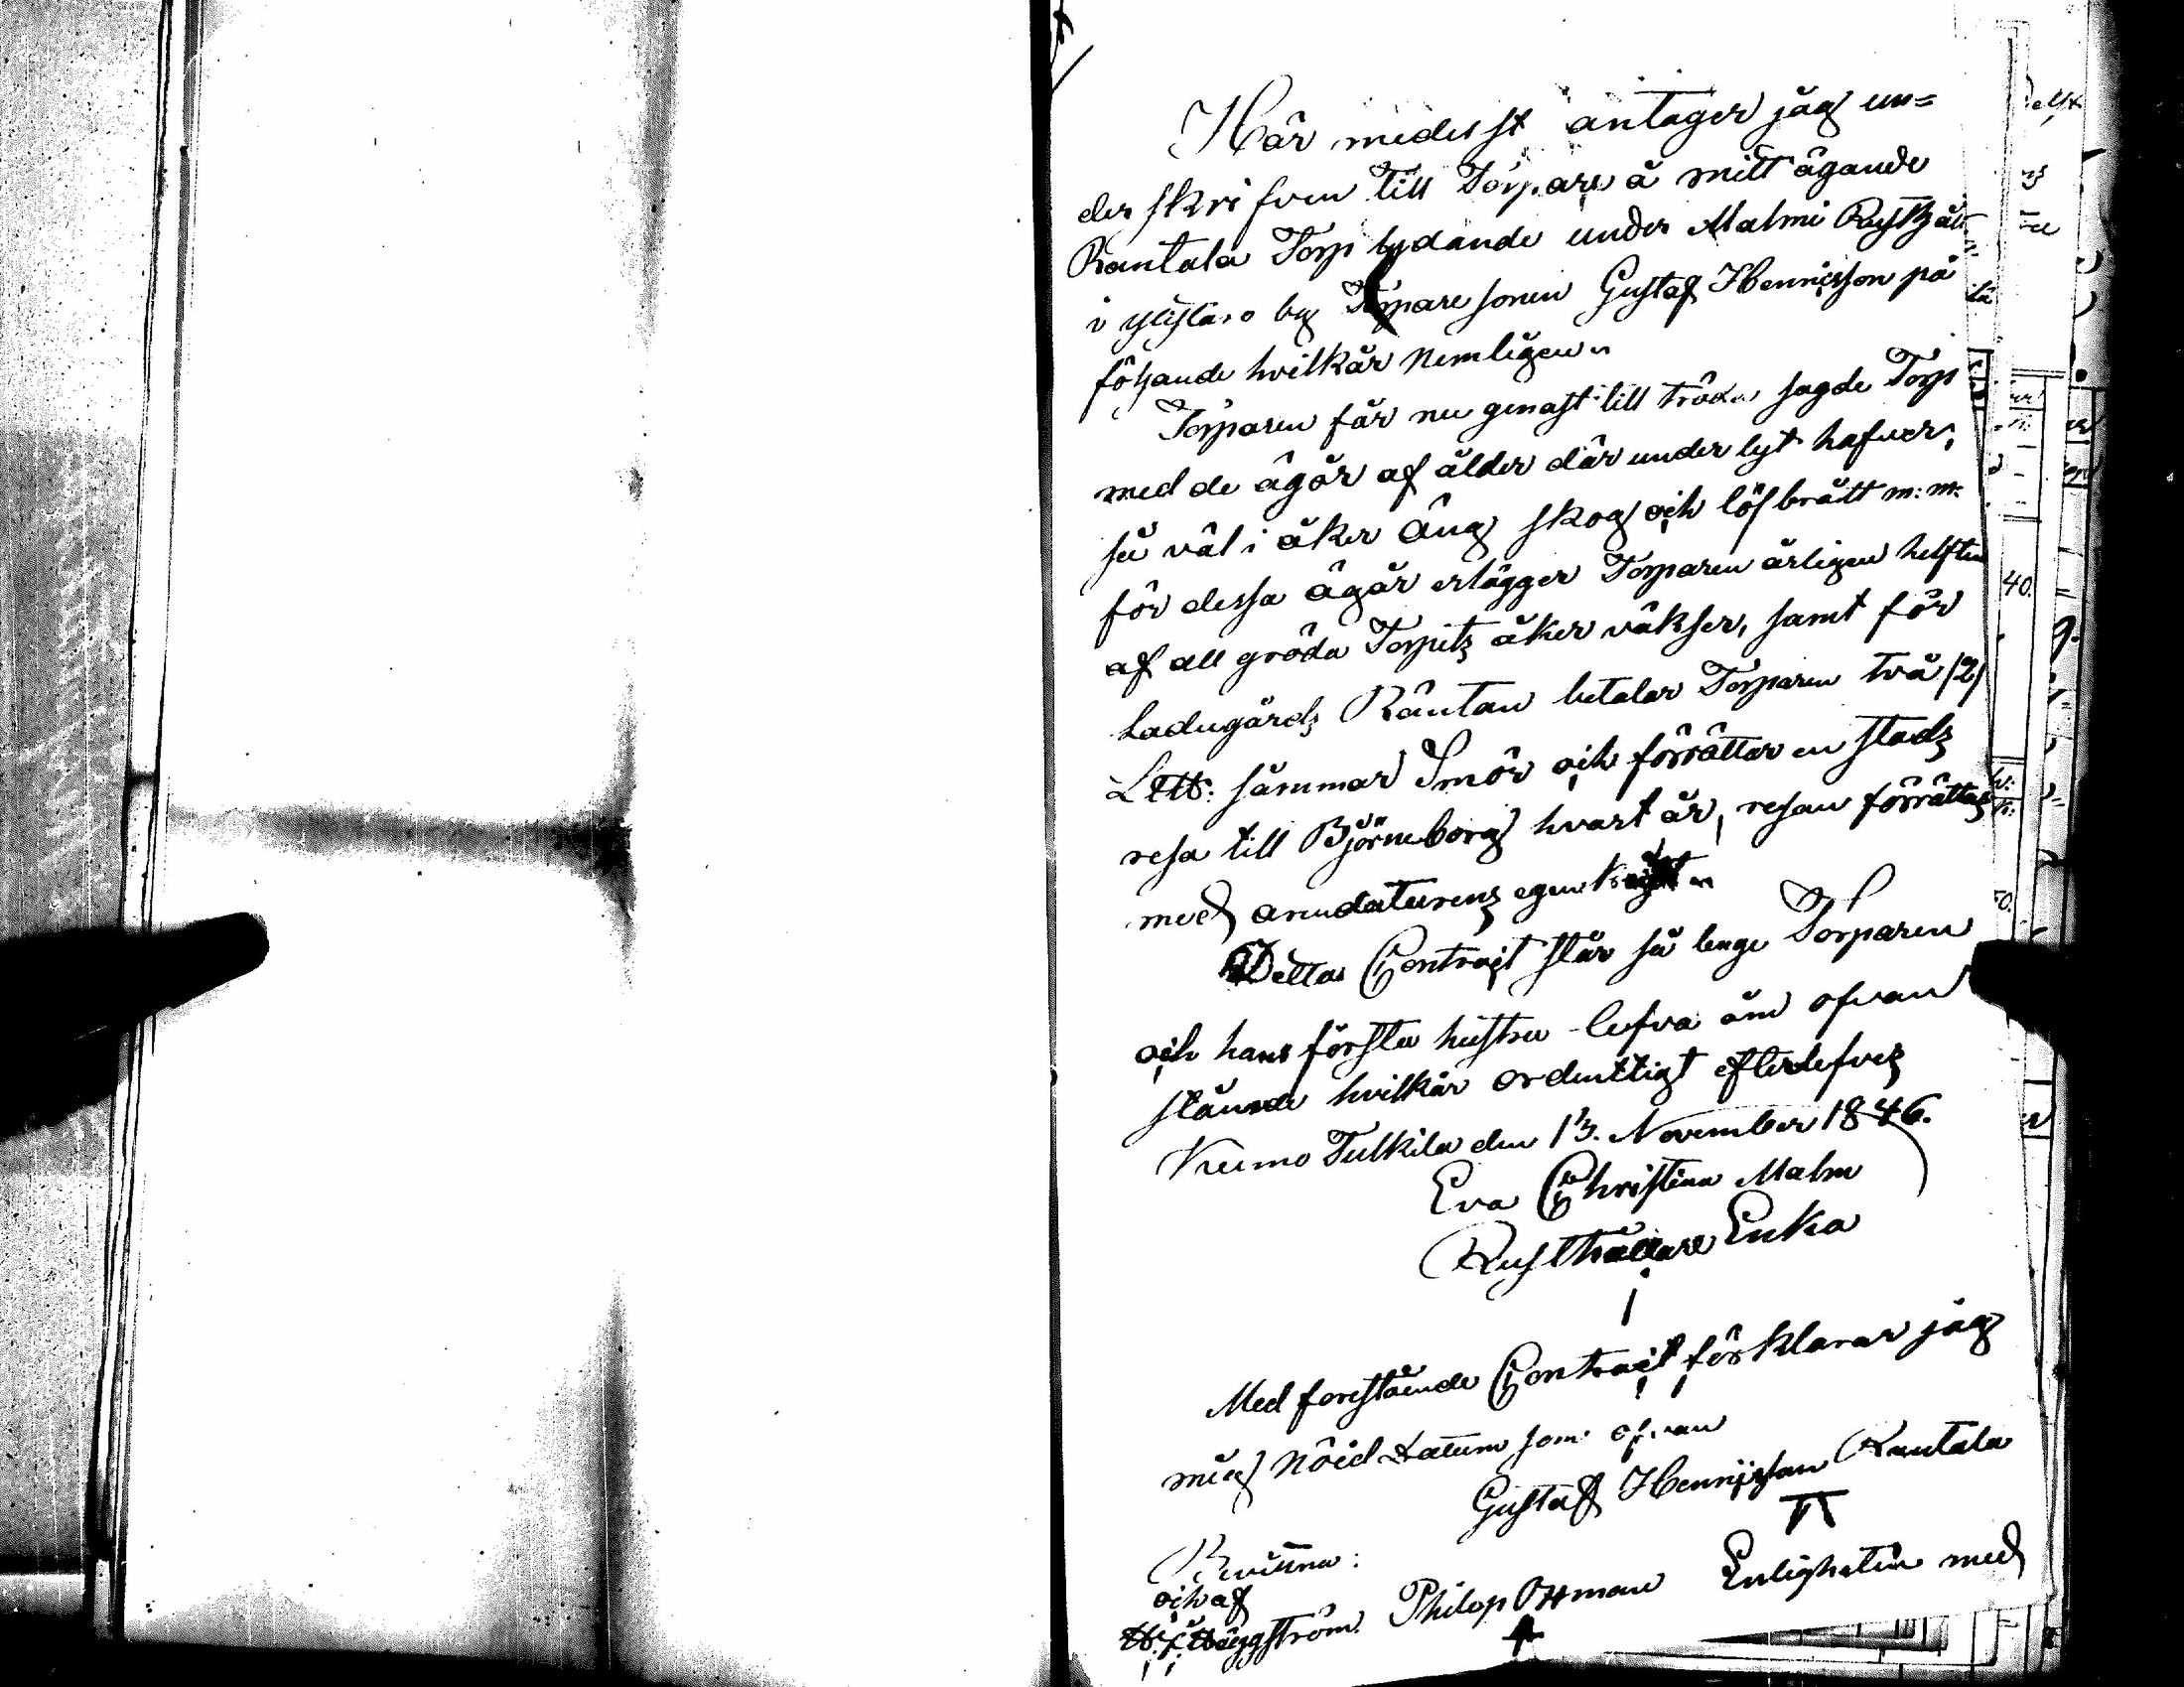 Här medelst antager jag un=
der skrifven till Torpare å mitt ägande
Rantala Torp lydande under Malmi Rusthåll
i ylistaro by Torpare sonen Gustaf Henricsson på
följande hvilkår nemligen
Torparen får nu genast till träda sagde Torp
med de ägor af ålder där under lyt hafver,
så väl i åker äng skog och löfbrått m: m:
för dessa ägor erlägger Torparen årligen helften
af all gröda Torpets åker växser, samt för
Ladugårds Räntan betalar Torparen två /2/
L℔: sommar Smör och förrättar en stads
resa till Björneborg hvart år, resan förrättas
med arendaturens egen kost
Detta Contract står så lenge Torparen
och hans första hustru lefva om ofvan
stånde hvilkår ordentligt efterlefves
Kumo Tulkila den 13. November 1846.
Eva Christina Malm
Rusthållare Enka
Med forestående Contract förklarar jag
mig nöid datum som ofvan
Gustaf Henricsson Rantala
Bevittna:
och af
Häggström. Philop Ottman Enligheten med
40.